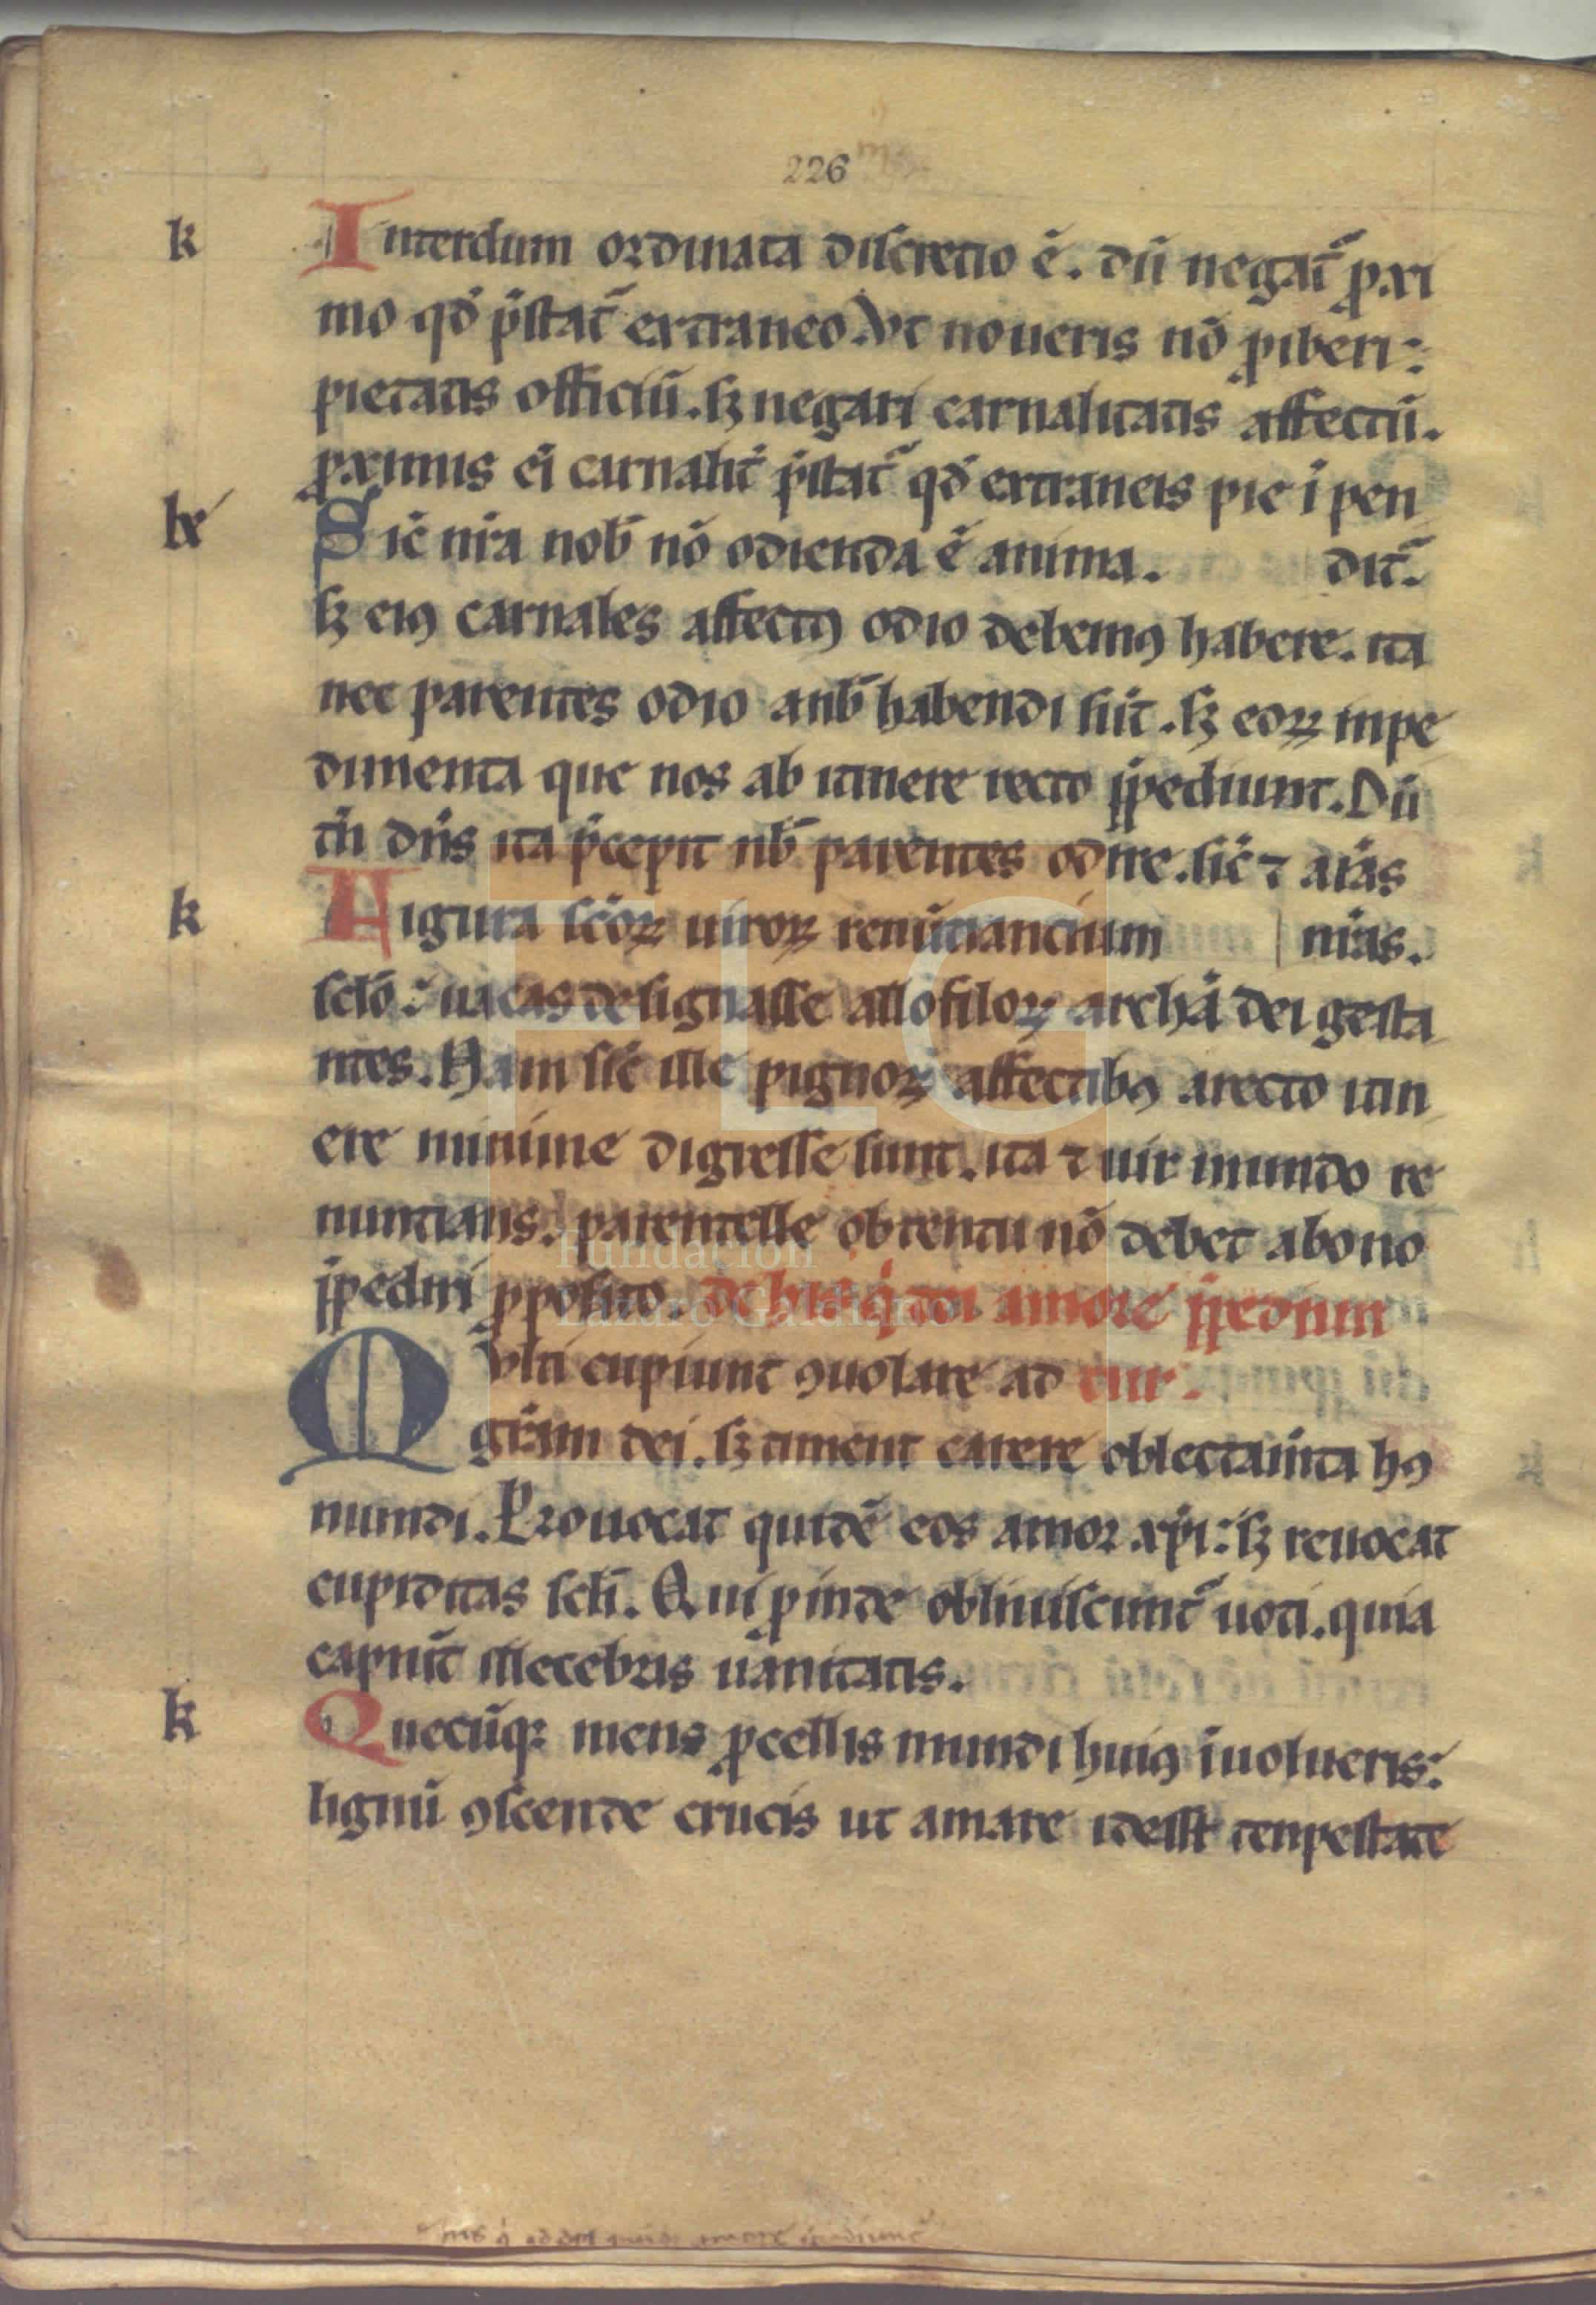 226
k
Interdum ordinata discretio ē. dū negat᷑ ꝓxi
mo qđ p̄stat᷑ extraneo. Vt noueris nō ꝓiberi:
pietatis officiū. sꝫ negari carnalitatis affectū.
ꝓximus ei carnalit̄ p̄stat᷑ qđ extraneis pie ī pen
lx
Sic̄ nr̄a nob̄ nō odienda ē anima. dit᷑.
sꝫ eiꝰ carnales affectꝰ odio debemꝰ habere. ita
nec parentes odio a nb̄ habendi sūt. sꝫ eoꝝ inpe
dimenta que nos ab itinere recto īpediunt. Dū
tn̄ dn̄s ita p̄cepit nb̄ parentes odire. sic̄ ⁊ aīas
k
Figura sc̄oꝝ uiroꝝ renūtiancium nr̄as.
sclō: uacas designasse allofiloꝝ archā dei gesta
ntes. Nam sic̄ ille pignoꝝ affectibꝰ arecto itin
ere minime digresse sunt. ita ⁊ uir mundo re
nuntians. parentelle obtentu nō debet abono
īpediri ꝓposito. de his q̇ dei amore īpediun
tur.
Mvlti cupiunt ꝯuolare ad
gr̄am dei. sꝫ timent carere oblectam̄ta hꝰ
mundi. Prouocat quidē eos amor xp̄i: sꝫ reuocat
cupiditas scl̄i. Qui ꝓinde obliuiscunt᷑ uoti. quia
capiūt illecebris uanitatis.
k
Quecūqꝫ mens ꝓcellis mundi huiꝰ īuolueris:
lignū ꝯscende crucis ut a mare idest tenpestate
Fundación
Lázaro Galdiano
FLG